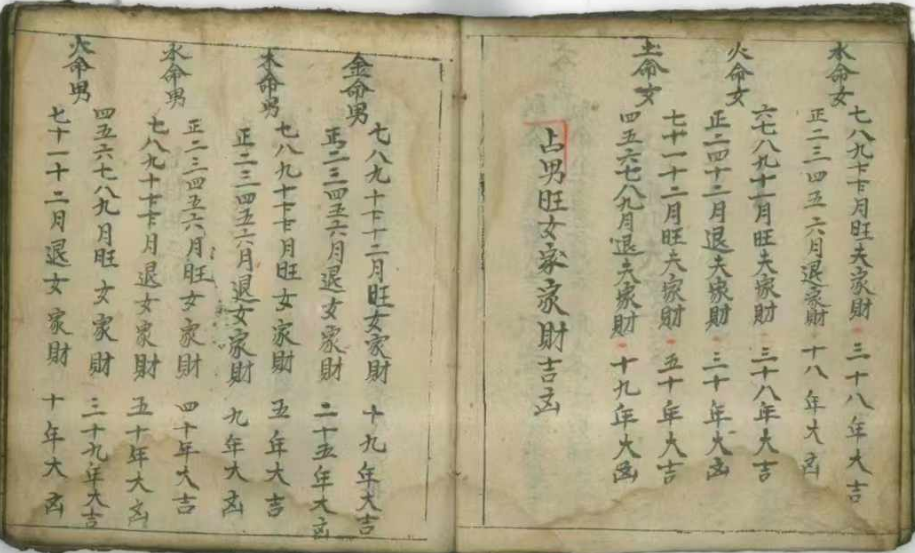 水命女
七八九十月旺夫家財 三十八年大吉
正二三四五六月退家財 十八年大凶
火命女
六七八九十一月旺夫家財 三十八年大吉
正二四十二月退夫家財 三十年大凶
土命女
七十一十二月旺夫家財 五十年大吉
四五六七八九月退夫家財 十九年大凶
占男旺女家家財吉凶
金命男
七八九十十二月旺女家財 十九年大吉
正二三四五六月退女家財 二十五年大凶
木命男
七八九十月旺女家財 五年大吉
正二三四五六月退女家財 九年大凶
水命男
正二三四五六月旺女家財 四十年大吉
七八九十月退女家財 五十年大凶
火命男
四五六七八九月旺女家財 三十九年大吉
七十一十二月退女家財 十年大凶